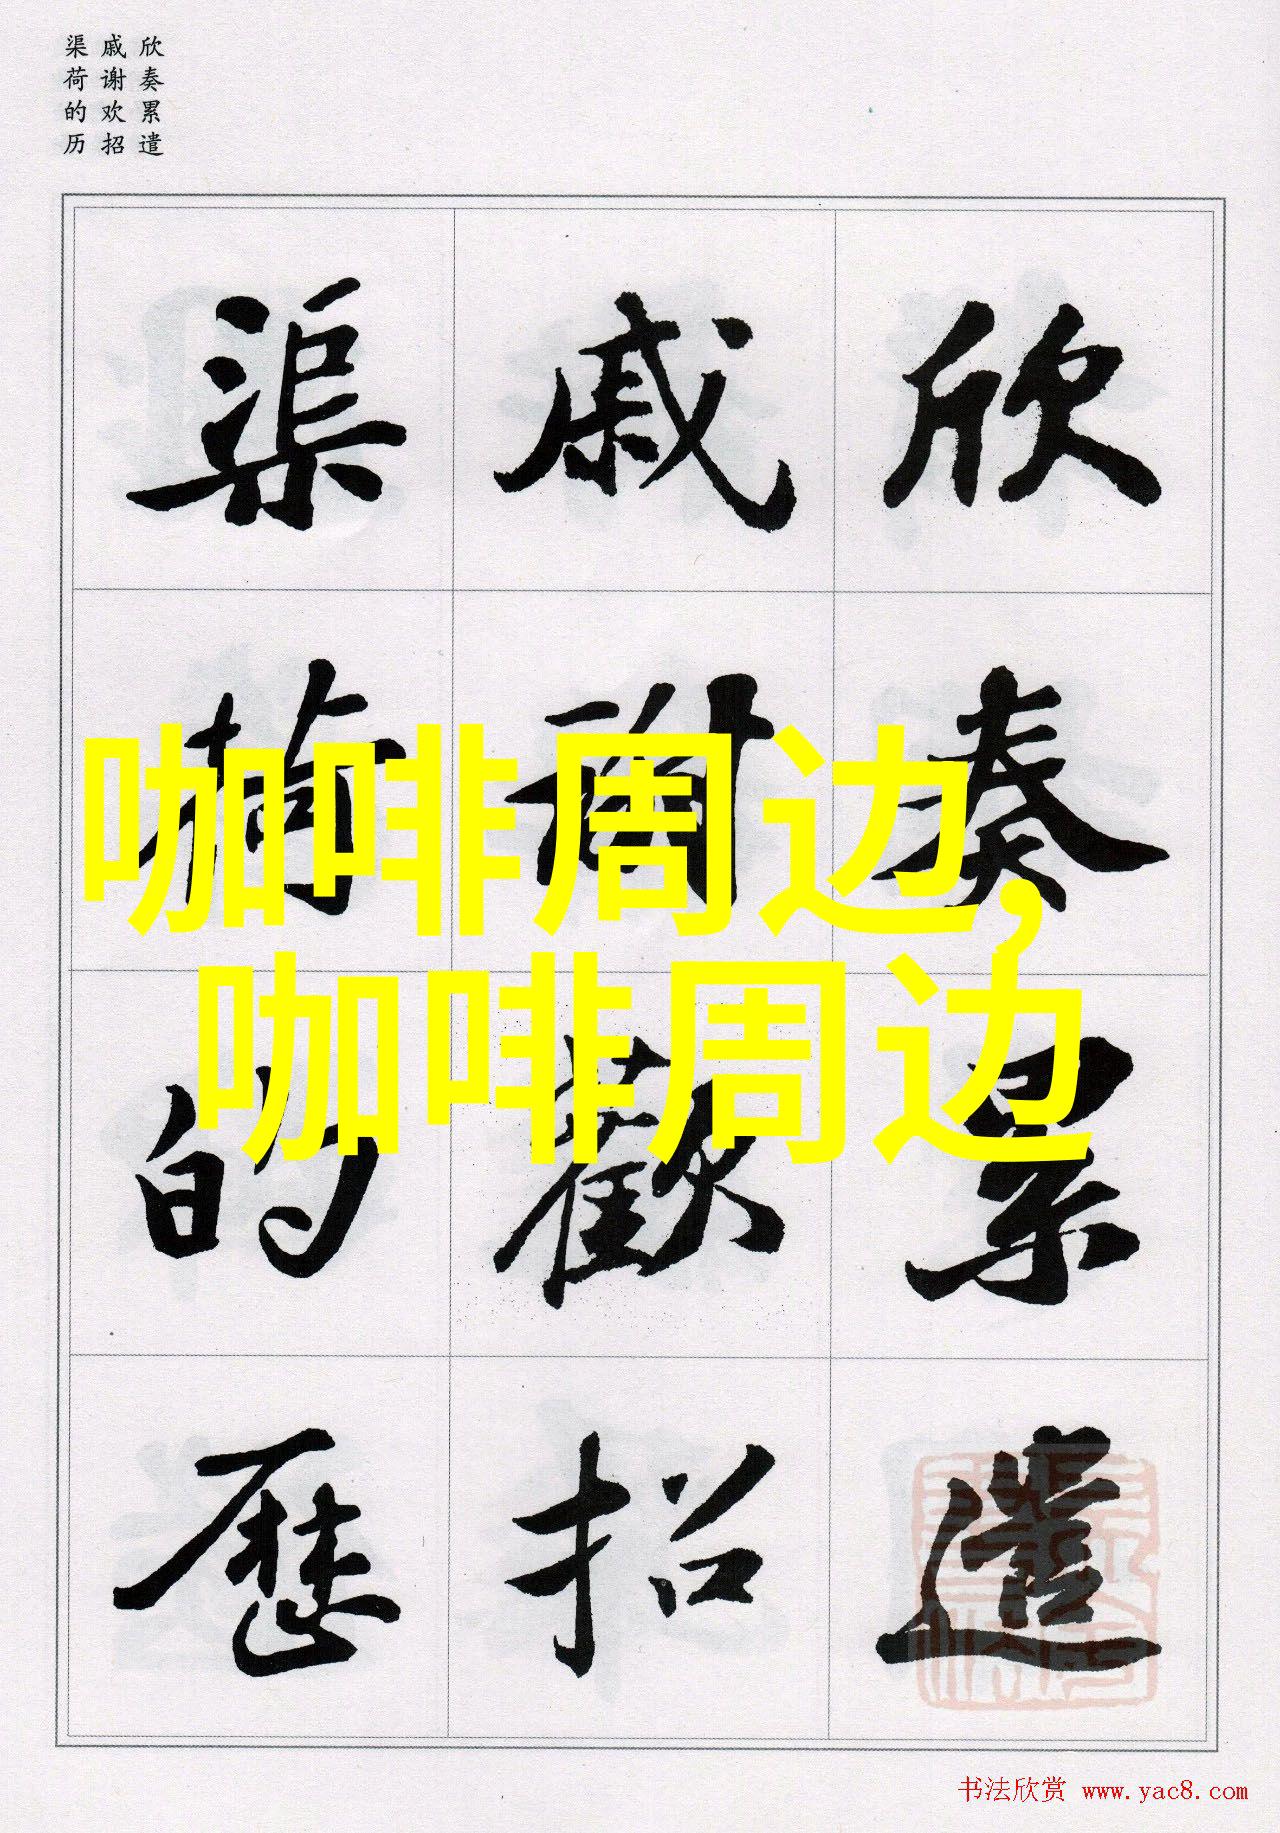 欣奏累遣
戚谢欢招
渠荷的历
欣奏累遣
戚謝歡招
渠荷的歷
咖啡周边,
咖啡周边
书法欣赏 www.yac8.com